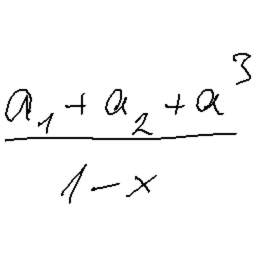 \frac{a_1 + a_2 + a^3}{1 - x}